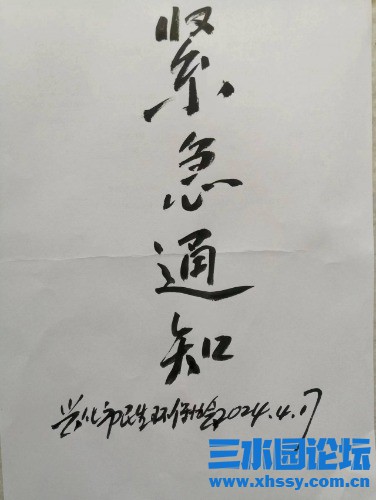 紧急通知
兴化市民生环保会2024.4.17
三水园论坛
www.xhssy.com.cn